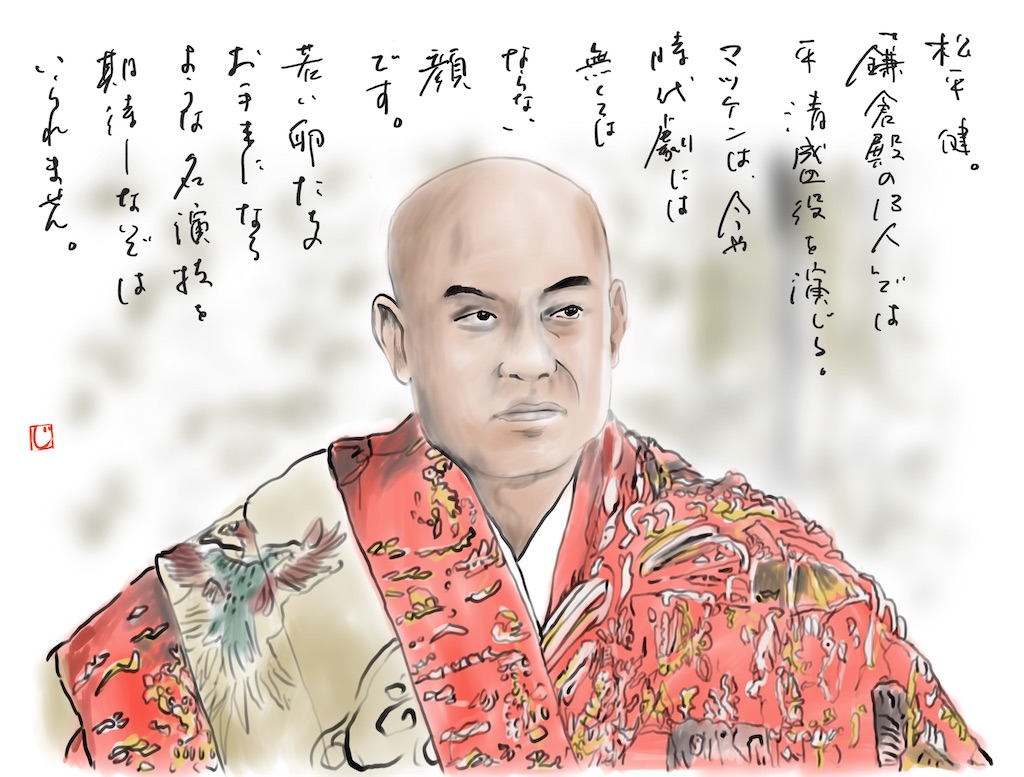 松平健。
『鎌倉殿の13人』では
平清盛役を演じる。
マツケンは、今や
時代劇には
無くては
ならない
顔
です。
若い卵たちの
お手本になる
ような名演技を
期待しないでは
いられません。
じ